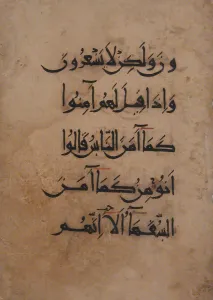 ون ولكن لا يشعرون
واذا قيل لهم آمنوا
كما آمن الناس قالوا
انؤمن كما آمن
السفهآ الآ انهم